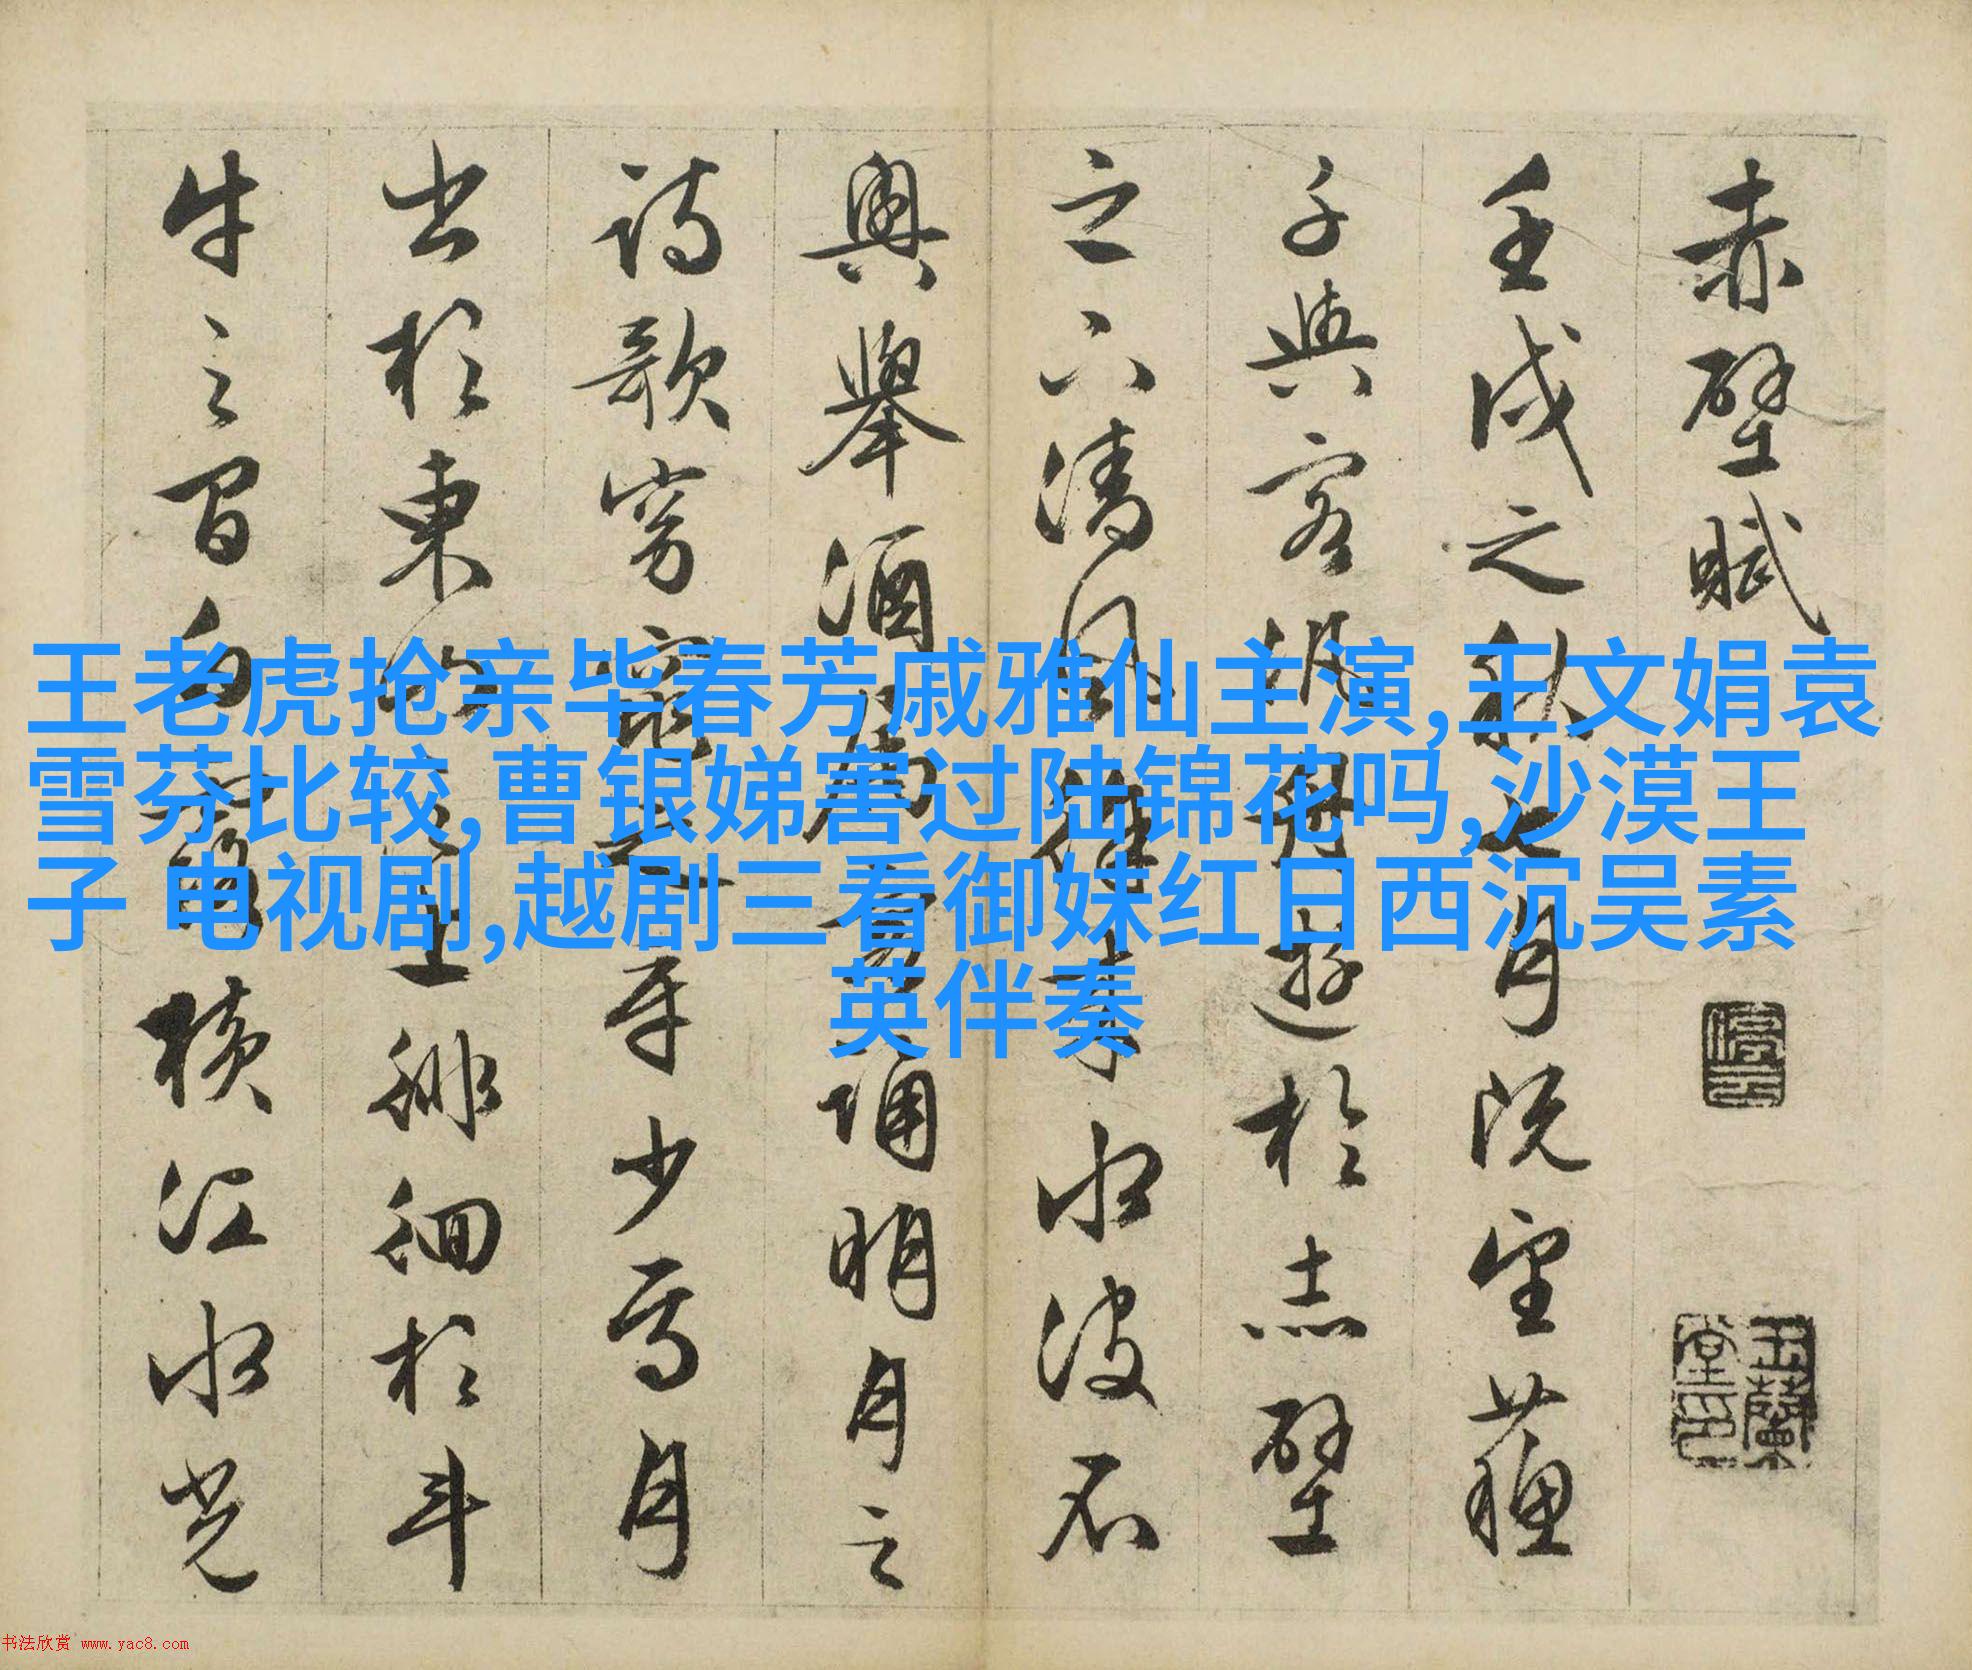 赤壁賦
停雲
玉蘭堂印
壬戌之秋七月既望蘇
子與客汎舟遊於赤壁
之下清風徐來水波不
興舉酒屬客誦明月之
詩歌窈窕之章少焉月
出於東山之上徘徊於斗
牛之間白露橫江水光
王老虎抢亲毕春芳戚雅仙主演,王文娟袁
雪芬比较,曹银娣害过陆锦花吗,沙漠王
子 电视剧,越剧三看御妹红日西沉吴素
英伴奏
书法欣赏 www.yac8.com